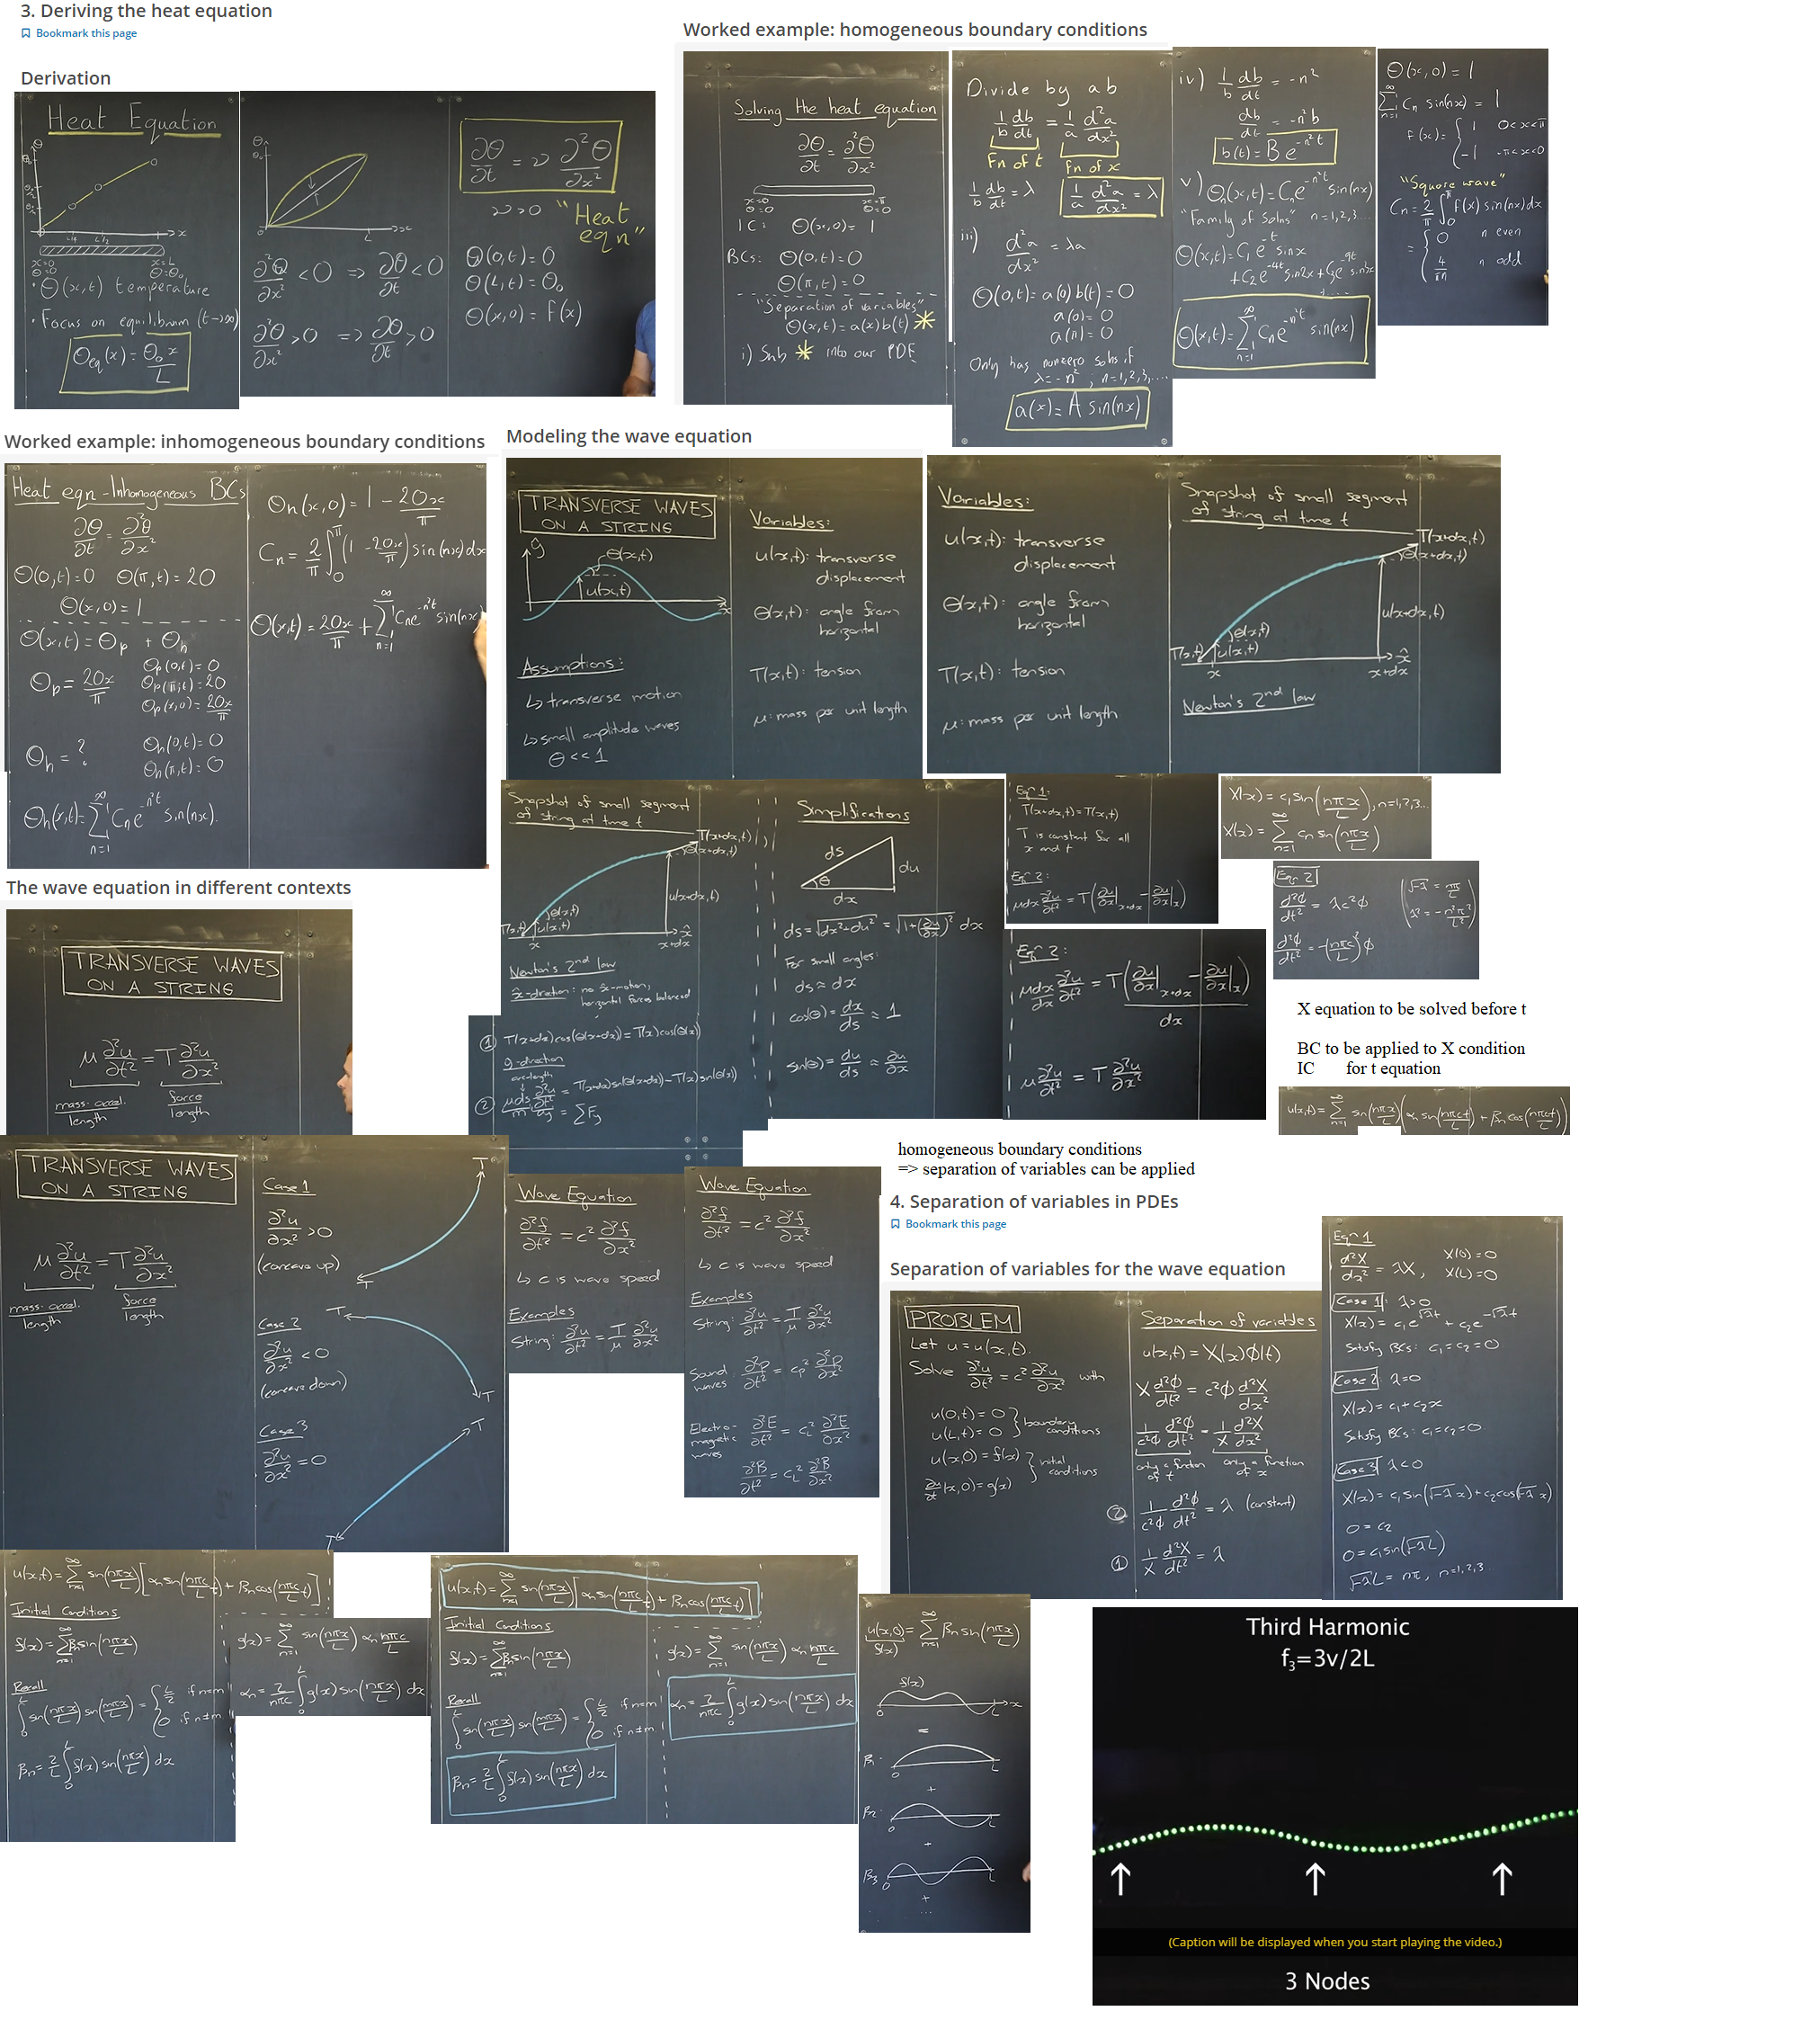 3. Deriving the heat equation
Bookmark this page
Derivation
Heat Equation
x=0
θ=0
x=L
θ=θ₀
• θ(x,t) temperature
• Focus on equilibrium (t→∞)
θeq(x) = θ₀x/L
∂²θ/∂x² < 0 ⇒ ∂θ/∂t < 0
∂²θ/∂x² > 0 ⇒ ∂θ/∂t > 0
∂θ/∂t = ν ∂²θ/∂x²
ν>0 "Heat eqn"
θ(0,t) = 0
θ(L,t) = θ₀
θ(x,0) = f(x)
Worked example: homogeneous boundary conditions
Solving the heat equation
∂θ/∂t = ∂²θ/∂x²
x=0 x=π
θ=0 θ=0
IC: θ(x,0) = 1
BCs: θ(0,t) = 0
θ(π,t) = 0
"Separation of variables"
θ(x,t) = a(x)b(t) *
i) Sub * into our PDE
Divide by ab
1/b db/dt = 1/a d²a/dx²
Fn of t Fn of x
1/b db/dt = λ 1/a d²a/dx² = λ
iii) d²a/dx² = λa
θ(0,t) = a(0)b(t) = 0
a(0) = 0
a(π) = 0
Only has nonzero solns if
λ = -n², n=1,2,3,...
a(x) = A sin(nx)
iv) 1/b db/dt = -n²
db/dt = -n²b
b(t) = Be^(-n²t)
v) θn(x,t) = Cne^(-n²t) sin(nx)
"Family of solns" n=1,2,3...
θ(x,t) = C₁e^(-t) sinx
+C₂e^(-4t) sin2x + C₃e^(-9t) sin3x
θ(x,t) = Σ_(n=1)^∞ Cne^(-n²t) sin(nx)
θ(x,0) = 1
Σ_(n=1)^∞ Cn sin(nx) = 1
f(x) = { 1 0<x<π
-1 -π<x<0
"Square wave"
Cn = 2/π ∫_0^π f(x) sin(nx)dx
= { 0 n even
4/πn n odd
Worked example: inhomogeneous boundary conditions
Heat eqn - Inhomogeneous BCs
∂θ/∂t = ∂²θ/∂x²
θ(0,t)=0 θ(π,t)=20
θ(x,0)=1
θ(x,t) = θp + θh
θp = 20x/π
θp(0,t) = 0
θp(π,t) = 20
θp(x,0) = 20x/π
θh = ?
θh(0,t) = 0
θh(π,t) = 0
θh(x,t) = Σ_(n=1)^∞ Cne^(-n²t) sin(nx).
θh(x,0) = 1 - 20x/π
Cn = 2/π ∫_0^π (1 - 20x/π) sin(nx)dx
θ(x,t) = 20x/π + Σ_(n=1)^∞ Cne^(-n²t) sin(nx)
Modeling the wave equation
TRANSVERSE WAVES
ON A STRING
θ(x,t)
u(x,t)
Assumptions:
↳ transverse motion
↳ small amplitude waves
θ << 1
Variables:
u(x,t): transverse
displacement
θ(x,t): angle from
horizontal
T(x,t): tension
μ: mass per unit length
Variables:
u(x,t): transverse
displacement
θ(x,t): angle from
horizontal
T(x,t): tension
μ: mass per unit length
Snapshot of small segment
of string at time t
T(x+dx,t)
θ(x+dx,t)
u(x+dx,t)
θ(x,t)
T(x,t) u(x,t)
x x+dx
Newton's 2nd law
Snapshot of small segment
of string at time t
T(x+dx,t)
θ(x+dx,t)
u(x+dx,t)
θ(x,t)
T(x,t) u(x,t)
x x+dx
Newton's 2nd law
x̂-direction: no x̂-motion,
horizontal forces balanced
① T(x+dx)cos(θ(x+dx)) = T(x)cos(θ(x))
ŷ-direction
② μds ∂²u/∂t² = T(x+dx)sin(θ(x+dx)) - T(x)sin(θ(x))
= ΣFy
Simplifications
ds
du
θ
dx
ds = √(dx²+du²) = √(1+(∂u/∂x)²) dx
For small angles:
ds ≈ dx
cos(θ) = dx/ds ≈ 1
sin(θ) = du/ds ≈ ∂u/∂x
Eqn 1:
T(x+dx,t) = T(x,t)
T is constant for all
x and t
Eqn 2:
μdx ∂²u/∂t² = T(∂u/∂x|x+dx - ∂u/∂x|x)
Eqn 2:
μdx/dx ∂²u/∂t² = T(∂u/∂x|x+dx - ∂u/∂x|x)/dx
μ ∂²u/∂t² = T ∂²u/∂x²
X(x) = c₁sin(nπx/L), n=1,2,3...
X(x) = Σ_(n=1)^∞ cn sin(nπx/L)
Eqn 2
d²φ/dt² = λc²φ
d²φ/dt² = -(nπc/L)²φ
X equation to be solved before t
BC to be applied to X condition
IC for t equation
u(x,t) = Σ_(n=1)^∞ sin(nπx/L)(αn sin(nπct/L) + βn cos(nπct/L))
The wave equation in different contexts
TRANSVERSE WAVES
ON A STRING
μ ∂²u/∂t² = T ∂²u/∂x²
mass·accel./length force/length
TRANSVERSE WAVES
ON A STRING
μ ∂²u/∂t² = T ∂²u/∂x²
mass·accel./length force/length
Case 1
∂²u/∂x² > 0
(concave up)
Case 2
∂²u/∂x² < 0
(concave down)
Case 3
∂²u/∂x² = 0
T
T
T
T
T
T
Wave Equation
∂²f/∂t² = c² ∂²f/∂x²
↳ c is wave speed
Examples
String: ∂²u/∂t² = T/μ ∂²u/∂x²
Wave Equation
∂²f/∂t² = c² ∂²f/∂x²
↳ c is wave speed
Examples
String: ∂²u/∂t² = T/μ ∂²u/∂x²
Sound waves: ∂²p/∂t² = cp² ∂²p/∂x²
Electro-magnetic waves ∂²E/∂t² = cL² ∂²E/∂x²
∂²B/∂t² = cL² ∂²B/∂x²
homogeneous boundary conditions
=> separation of variables can be applied
4. Separation of variables in PDEs
Bookmark this page
Separation of variables for the wave equation
PROBLEM
Let u = u(x,t).
Solve ∂²u/∂t² = c² ∂²u/∂x² with
u(0,t) = 0
u(L,t) = 0 } boundary conditions
u(x,0) = f(x)
∂u/∂t(x,0) = g(x) } initial conditions
Separation of variables
u(x,t) = X(x)φ(t)
X d²φ/dt² = c²φ d²X/dx²
1/c²φ d²φ/dt² = 1/X d²X/dx²
only a function of t only a function of x
② 1/c²φ d²φ/dt² = λ (constant)
① 1/X d²X/dt² = λ
Eqn 1
d²X/dx² = λX, X(0)=0
X(L)=0
Case 1: λ>0
X(x) = c₁e^(√λt) + c₂e^(-√λt)
Satisfy BCs: c₁=c₂=0
Case 2: λ=0
X(x) = c₁+c₂x
Satisfy BCs: c₁=c₂=0
Case 3 λ<0
X(x) = c₁sin(√-λ x)+c₂cos(√-λ x)
0 = c₂
0 = c₁sin(√-λL)
√-λL = nπ, n=1,2,3...
u(x,t) = Σ_(n=1)^∞ sin(nπx/L)[αn sin(nπc/L t) + βn cos(nπc/L t)]
Initial Conditions
f(x) = Σ_(n=1)^∞ βn sin(nπx/L)
Recall
∫_0^L sin(nπx/L) sin(mπx/L) = { L/2 if n=m
0 if n≠m
βn = 2/L ∫_0^L f(x) sin(nπx/L) dx
g(x) = Σ_(n=1)^∞ sin(nπx/L) αn nπc/L
αn = 2/nπc ∫_0^L g(x) sin(nπx/L) dx
u(x,t) = Σ_(n=1)^∞ sin(nπx/L)[αn sin(nπc/L t) + βn cos(nπc/L t)]
Initial Conditions
f(x) = Σ_(n=1)^∞ βn sin(nπx/L)
Recall
∫_0^L sin(nπx/L) sin(mπx/L) = { L/2 if n=m
0 if n≠m
βn = 2/L ∫_0^L f(x) sin(nπx/L) dx
g(x) = Σ_(n=1)^∞ sin(nπx/L) αn nπc/L
αn = 2/nπc ∫_0^L g(x) sin(nπx/L) dx
u(x,0) = Σ_(n=1)^∞ βn sin(nπx/L)
f(x)
f(x)
0 L x
=
β₁·
0 L
+
β₂·
0 L
+
β₃
0 L
+
...
Third Harmonic
f₃=3v/2L
(Caption will be displayed when you start playing the video.)
3 Nodes